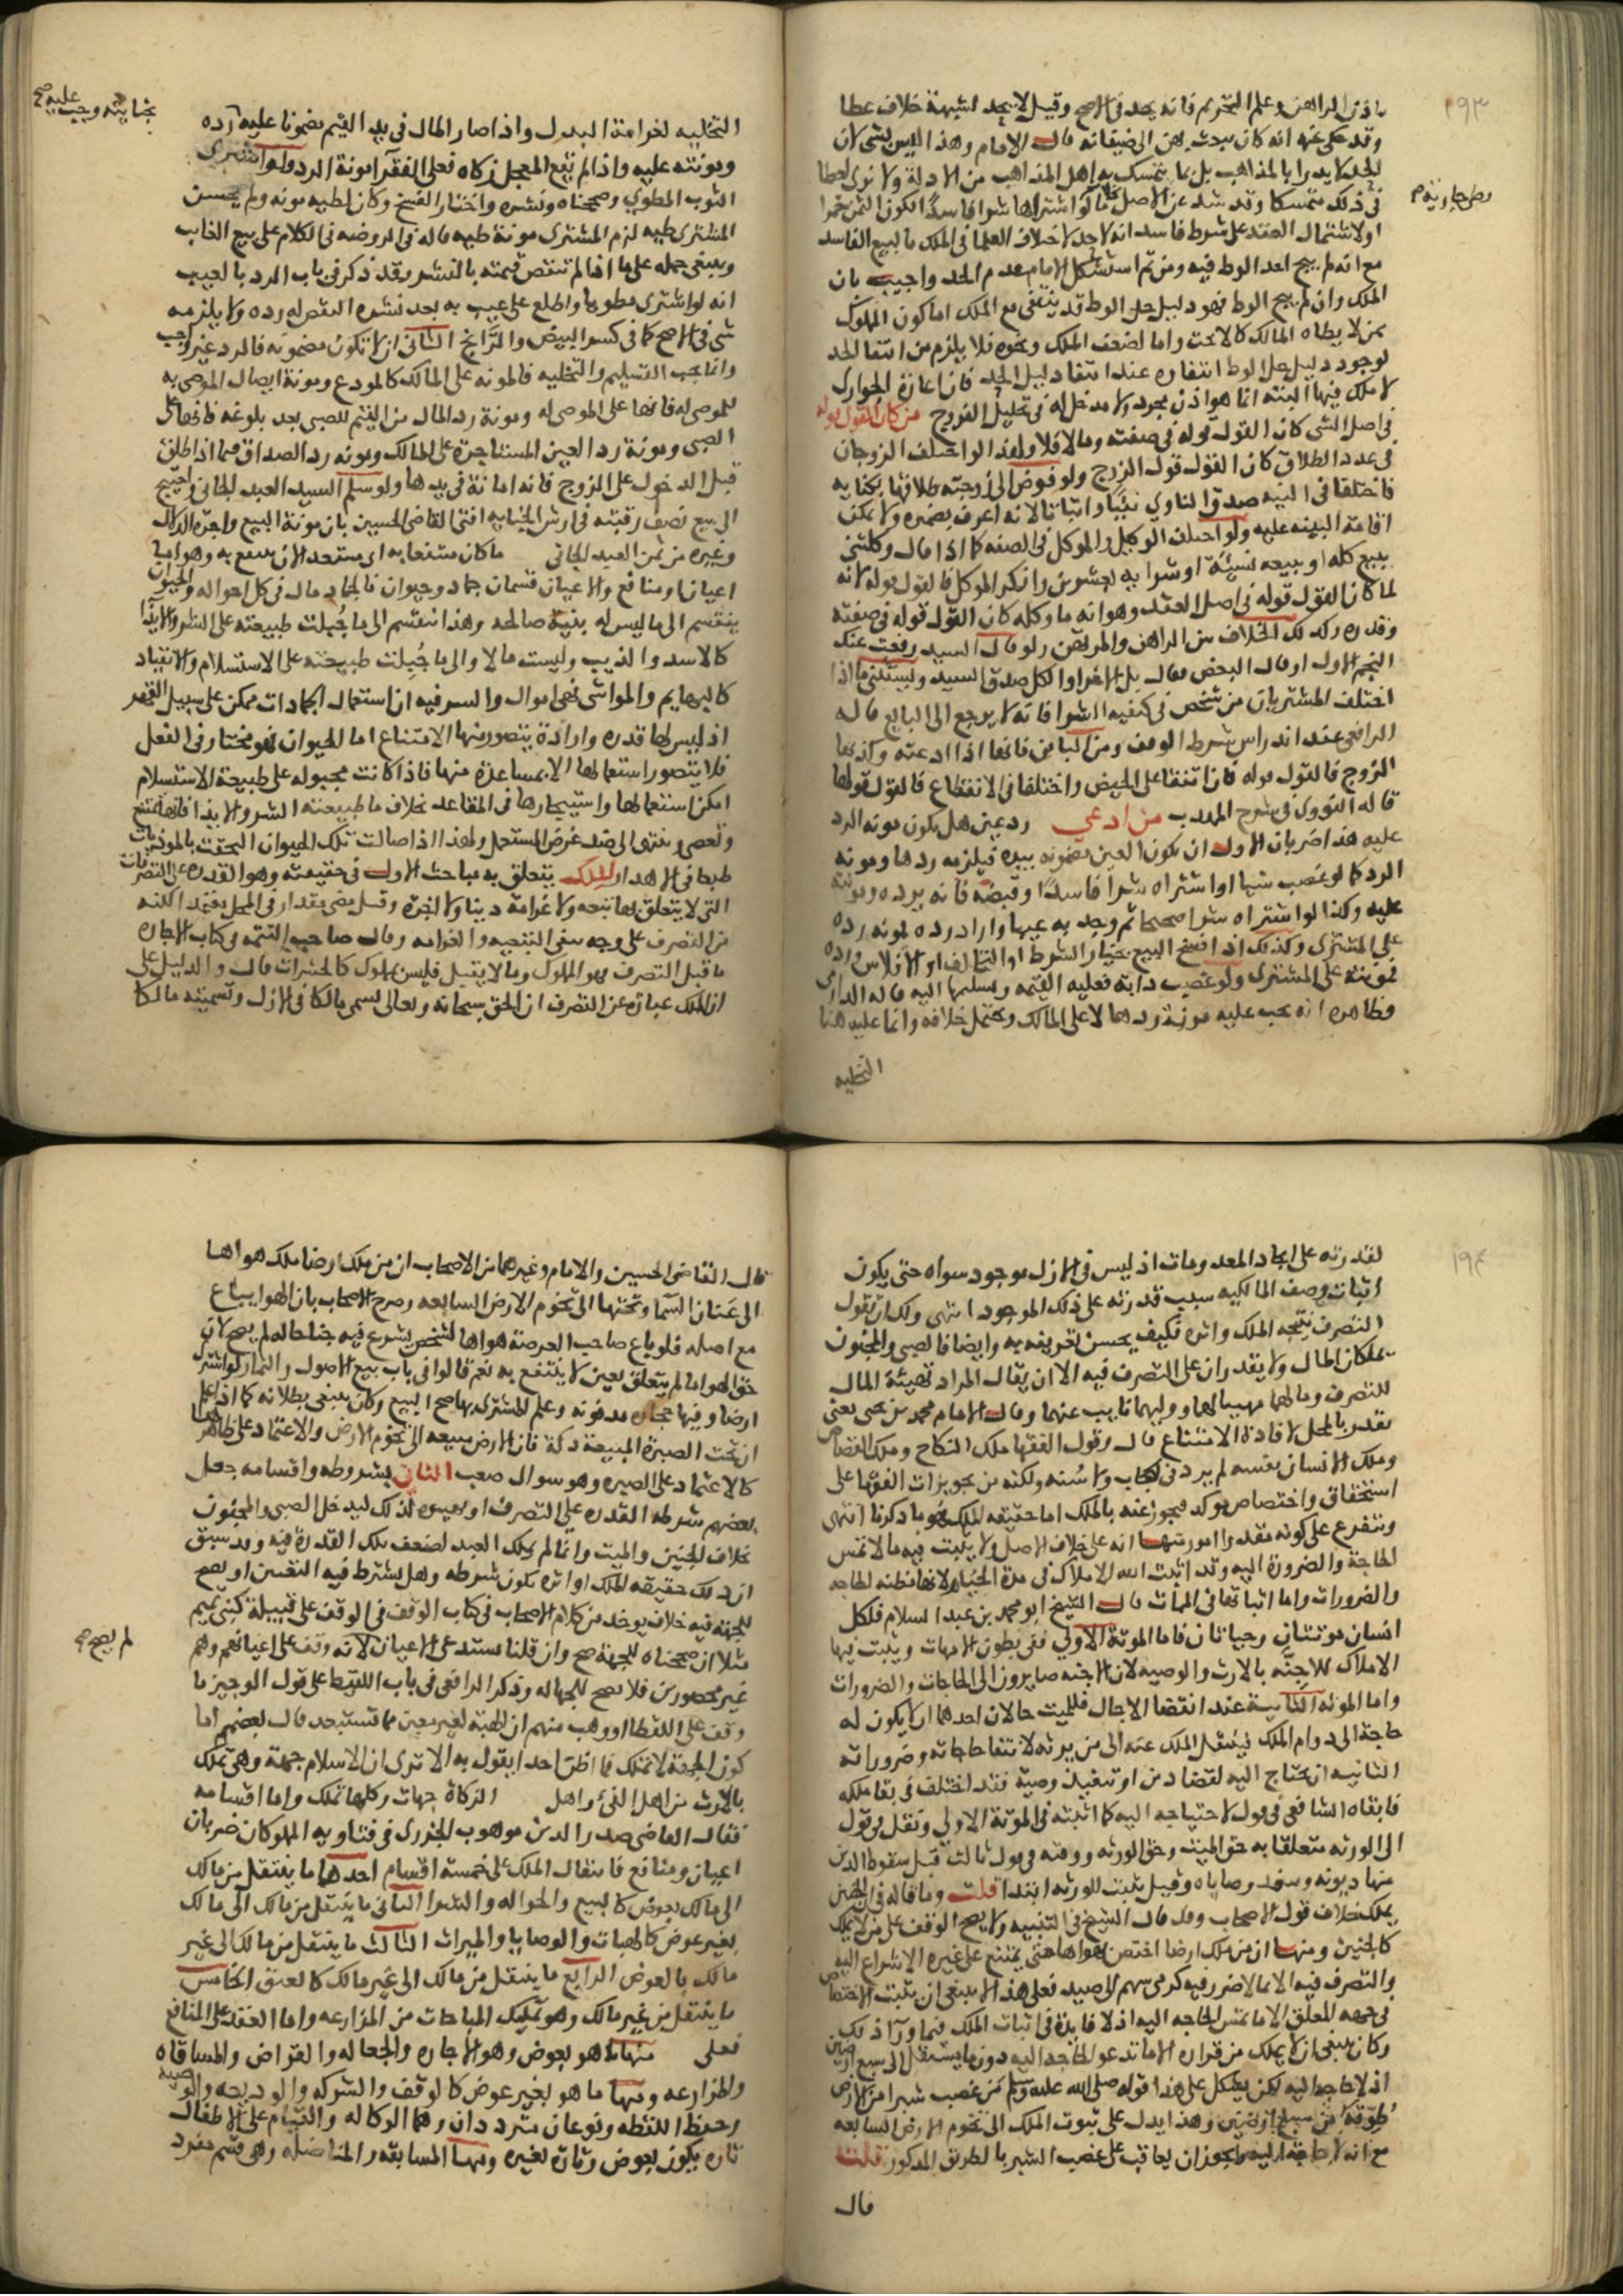 ١٩٣
باذن الراهن وعلم التحريم فانه يحد في الاصح وقيل لا يحد لشبهة خلاف عطا
وقد حكي عنه انه كان يبعث بهن الى ضيفانه قال الامام وهذا ليس بشي لان
الحد لا يدرا بالمذاهب بل بما يتمسك به اهل المذاهب من الادلة ولا نرى لعطا
في ذلك متمسكا وقد شذ عن الاصل ما لو اشتراها شرا فاسدا لكون الثمن خمرا
وطى جارية
او لاشتمال العقد على شرط فاسد انه لا حد لاختلاف العلما في الملك بالبيع الفاسد
مع انه لم يبح احد الوط فيه ومن ثم استشكل الامام عدم الحد واجيب بان
الملك وان لم يبح الوط فهو دليل حل الوط قد ينتفي مع الملك اما لكون المملوك
ممن لا يطاه المالك كالاخت واما لضعف الملك ونحوه فلا يلزم من انتفا الحد
لوجود دليل حل الوط انتفاوه عند انتفا دليل الحد فان اعارة الجواري
لا ملك فيها البتة انما هو اذن مجرد ولا مدخل له في تحليل الفروج من كان القول قوله
في اصل الشي كان القول قوله في صفته وما لا فلا ولهذا لو اختلف الزوجان
في عدد الطلاق كان القول قول الزوج ولو فوض الى زوجته طلاقها بكناية
فاختلفا في النية صدق الناوي نفيا واثباتا لانه اعرف بضميره ولا يمكن
اقامة البينة عليه ولو اختلف الوكيل والموكل في الصفه كما اذا قال وكلتني
ببيع كله او بيعه نسيئة او شرا به بعشرين وانكر الموكل فالقول قوله لانه
لما كان القول قوله في اصل العقد وهو انه ما وكله كان القول قوله في صفته
وقدره وكذلك الخلاف بين الراهن والمرتهن ولو قال السيد رفعت عنك
النجم الاول او قال البعض فقال بل الاخر او الكل صدق السيد ويستثنى ما اذا
اختلف المشتريان من شخص في كيفية الشرا فانه لا يرجع الى البايع قاله
الرافعي عند اندراس شرط الوقف ومن البائن فانها اذا ادعته وكذبها
الزوج فالقول قوله فان اتفقا على الحيض واختلفا في الانقطاع فالقول قولها
قاله النووي في شرح المهذب من ادعي رد عين هل يكون مونه الرد
عليه هذا ضربان الاول ان يكون العين مضمونه بيده فيلزمه ردها ومونه
الرد كما لو غصب شيا او اشتراه شرا فاسدا وقبضه فانه يرده ومونته
عليه وكذا لو اشتراه شرا صحيحا ثم وجد به عيبا واراد رده لمونه رده
على المشتري وكذلك اذا فسخ البيع بخيار الشرط او التحالف او الافلاس ورده
فمونته على المشتري ولو غصب دابة فعليه القيمه وتسليمها اليه قاله الدارمي
وظاهره انه يجب عليه مونة ردها لا على المالك ويحتمل خلافه وانما عليه هنا
التخليه
التخليه لغرامة البدل واذا صار المال في يد القيم مضمونا عليه رده
بجنايته وجب عليه صح
ومونته عليه واذا لم يقع المعجل زكاه فعلى الفقرا مونة الرد ولو اشترى
الثوب المطوي وصححناه ونشره واختار الفسخ وكان لطيه مونه ولم يحسن
المشتري طيه لزم المشتري مونة طيه قاله في الروضه في الكلام على بيع الغايب
وينبغي حمله على ما اذا لم تنقص قيمته بالنشر وقد ذكر في باب الرد بالعيب
انه لو اشترى مطويا واطلع على عيب به بعد نشره النقص له رده ولا يلزمه
شي في الاصح كما في كسر البيض والرانج الثاني ان لا تكون مضمونه فالرد غير واجب
وانما يجب التسليم والتخليه فالمونه على المالك كالمودع ومونة ايصال الموصى به
للموصى له فانها على الموصى له ومونة رد المال من القيم للصبي بعد بلوغه فانها على
الصبي ومونة رد العين المستاجرة على المالك ومونه رد الصداق فيما اذا طلق
قبل الدخول على الزوج فانه امانة في يدها ولو سلم السيد العبد الجاني واحتيج
الى بيع نصف رقبته في ارش الجناية افتى القاضي الحسين بان مونة البيع واجرة الدلال
وغيره من ثمن العبد الجاني ما كان منتفعا به اي مستعد لان ينتفع به وهو اما
اعيان او منافع والاعيان قسمان جماد وحيوان فالجماد مال في كل احواله والحيوان
ينقسم الى ما ليس له بنية صالحه وهذا ينقسم الى ما جبلت طبيعته على الشر والايذا
كالاسد والذيب وليست مالا والى ما جبلت طبيعته على الاستسلام والانقياد
كالبهايم والمواشي فهي اموال والسر فيه ان استعمال الجمادات ممكن على سبيل القهر
اذ ليس لها قدره وارادة يتصور منها الامتناع اما الحيوان فهو مختار في الفعل
فلا يتصور استعمالها الا بمساعدة منها فاذا كانت مجبوله على طبيعة الاستسلام
امكن استعمالها واستيجارها في المقاعد بخلاف ما طبيعته الشر والايذا فانها تمتنع
وتعصي وتنتهي الى ضد غرض المستعمل ولهذا اذا صالت تلك الحيوان التحقت بالموذيات
طبعا في الاهدار الملك يتعلق به مباحث الاول في حقيقته وهو القدره على التصرفات
التي لا يتعلق بها تبعه ولا غرامة دنيا ولا اخره وقيل معنى مقدر في المحل يعتمد المكنه
من التصرف على وجه ينفي التبعيه والغرامه وقال صاحب التتمه في كتاب الاجاره
ما قبل التصرف فهو المملوك وما لا يقبل فليس بمملوك كالحشرات قال والدليل على
ان الملك عبارة عن التصرف ان الحق سبحانه وتعالى يسمى مالكا في الازل وتسميته مالكا
١٩٤
لقدرته على ايجاد المعدومات اذ ليس في الازل موجود سواه حتى يكون
اثبات وصف المالكيه بسبب قدرته على ذلك الموجود انتهى ولك ان تقول
التصرف نتيجه الملك واثره فكيف يحسن تعريفه به وايضا فالصبي والمجنون
يملكان المال ولا يقدران على التصرف فيه الا ان يقال المراد تهيئة المال
للتصرف ومالهما مهيا لهما ووليهما نايب عنهما وقال الامام محمد بن يحيى يعني
يقدر بالمحل لافادة الامتناع قال وقول الفقها ملك النكاح وملك القصاص
وملك الانسان نفسه لم يرد في كتاب ولا سنه ولكنه من تجويزات الفقها على
استحقاق واختصاص موكد فيجوز عنه بالملك اما حقيقه الملك فهو ما ذكرنا انتهى
ويتفرع على كونه مقدرا امور منها انه على خلاف الاصل ولا يثبت فيه ما لا تمس
الحاجة والضرورة اليه وقد اثبت الله الاملاك في مدة الحياة لانها مظنه الحاجه
والضرورات واما اثباتها في الممات قال الشيخ ابو محمد بن عبد السلام فلكل
انسان موتتان وحياتان فاما الموتة الاولى ففي بطون الامهات ويثبت فيها
الاملاك للاجنه بالارث والوصيه لان الاجنه صايرون الى الحاجات والضرورات
واما الموته الثانية عند انقضا الاجال فللميت حالان احدهما ان لا يكون له
حاجة الى دوام الملك فينتقل الملك عنه الى من يرثه لانتفا حاجاته وضروراته
الثانيه ان يحتاج اليه لقضا دين او تنفيذ وصية فقد اختلف في بقا ملكه
فابقاه الشافعي في قول لاحتياجه اليه كما اثبته في الموتة الاولى ونقل في قول
الى الورثه متعلقا به حق الميت وحق الورثه ووقفه في قول ثالث قبل سقوط الدين
منها ديونه وتنفذ وصاياه وقيل يثبت للورثه ابتدا قلت وما قاله في ان الجنين
يملك خلاف قول الاصحاب وقد قال الشيخ في التنبيه ولا يصح الوقف على من لا يملك
كالجنين ومنها ان من ملك ارضا اختص بهواها حتى يمتنع على غيره الاشراع اليه
والتصرف فيه الا بما لا ضرر فيه كرمي سهم الى صيد فعلى هذا لا ينبغي ان يثبت الاختصاص
في جهه المعلق الا ما تمس الحاجه اليه اذ لا فايدة في اثبات الملك فيما ورا ذلك
وكان ينبغي ان لا يملك من قراره الا ما تدعو الحاجه اليه دون ما يستقل الى سبع ارضين
اذ لا حاجه اليه لكن يشكل على هذا قوله صلى الله عليه وسلم من غصب شبرا من الارض
طوقه من سبع ارضين وهذا يدل على ثبوت الملك الى تخوم الارض السابعه
مع انه لا حاجة اليه ويجوز ان يعاقب على غصب الشبر بالطريق المذكور قلت
قال
قال القاضي الحسين والامام وغيرهما من الاصحاب ان من ملك ارضا ملك هواها
الى عنان السما وتحتها الى تخوم الارض السابعه وصرح الاصحاب بان الهوا يباع
مع اصله فلو باع صاحب العرصة هواها لشخص يشرع فيه جناحا له لم يصح لان
حق الهوا ما لم يتعلق بعين لا ينتفع به نعم قالوا في باب بيع الاصول والثمار لو اشترى
ارضا وفيها حجاره مدفونه وعلم المشتري بها صح البيع وكان ينبغي بطلانه كما اذا علم
ان تحت الصبرة المبيعة دكة فان الارض مبيعه الى تخوم الارض والاعتماد على ظاهرها
كالاعتماد على الصبره وهو سوال صعب الثاني بشروطه واقسامه جعل
بعضهم شرطه القدره على التصرف او بعينه لذلك ليدخل الصبي والمجنون
بخلاف الجنين والميت وانما لم يملك العبد لضعف ملك القدرة فيه وقد سبق
ان ذلك حقيقه الملك او اثره يكون شرطه وهل يشترط فيه التعين او يصح
للجهة فيه خلاف يوخذ من كلام الاصحاب في كتاب الوقف في الوقف على قبيلة كبني تميم
مثلا ان صححناه للجهة صح وان قلنا يستدعي الاعيان لانه وقف على اعيانهم وهم
لم يصح صح
غير محصورين فلا يصح للجهاله وذكر الرافعي في باب اللقيط على قول الوجيز ما
وقف على اللقطا او وهب منهم ان الهبة لغير معين مما تستبعد قال بعضهم اما
كون الجهة لا تملك فما اظن احدا يقول به الا ترى ان الاسلام جهة وهي تملك
بالارث من اهل الفي واهل الزكاة جهات وكلها تملك واما اقسامه
فقال القاضي صدر الدين موهوب الجزري في فتاويه المملوكان ضربان
اعيان ومنافع فانتقال الملك على خمسة اقسام احدها ما ينتقل من مالك
الى مالك بعوض كالبيع والحواله والشرا الثاني ما ينتقل من مالك الى مالك
بغير عوض كالهبات والوصايا والميراث الثالث ما ينتقل من مالك الى غير
مالك بالعوض الرابع ما ينتقل من مالك الى غير مالك كالعتق الخامس
ما ينتقل من غير مالك وهو تمليك المباحات من المزارعه واما العقد على المنافع
فعلى منها ما هو بعوض وهو الاجاره والجعاله والقراض والمساقاه
والمزارعه ومنها ما هو بغير عوض كالوقف والشركه والوديعه والوصيه
وحفظ اللقطه ونوعان متردد ان وهما الوكاله والقيام على الاطفال
تاره يكون بعوض وتاره بغيره ومنها المسابقه والمناضله وهي قسم مفرد